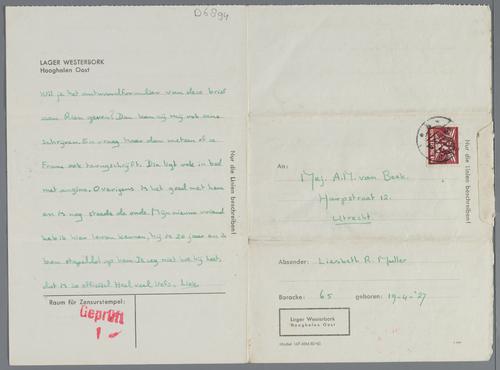 D6894
LAGER WESTERBORK
Hooghalen Oost
Wil je het antwoordformulier van deze brief
aan Rien geven? Dan kan hij mij ook eens
schrijven. En vraag hem dan meteen of ie
Frans ook terugschrijft. Die ligt ook in bed
met angina. Overigens is het goed met hem
en is nog steeds de oude. Mijn nieuwe vriend
heb ik hier leren kennen, hij is 20 jaar en ik
ben stapeldol op hem. Ik zeg niet hoe hij heet,
dat is zo officieel. Heel veel liefs. Liese
Nur die Linien beschreiben!
Raum für Zensurstempel:
Geprüft
1
An:
Mej. A.M. van Beek.
Haarpstraat 12.
Utrecht
Nur die Linien beschreiben!
Absender: Liesbeth R. Muller
Baracke: 65 geboren: 19-4-'27
Lager Westerbork
Hooghalen Oost